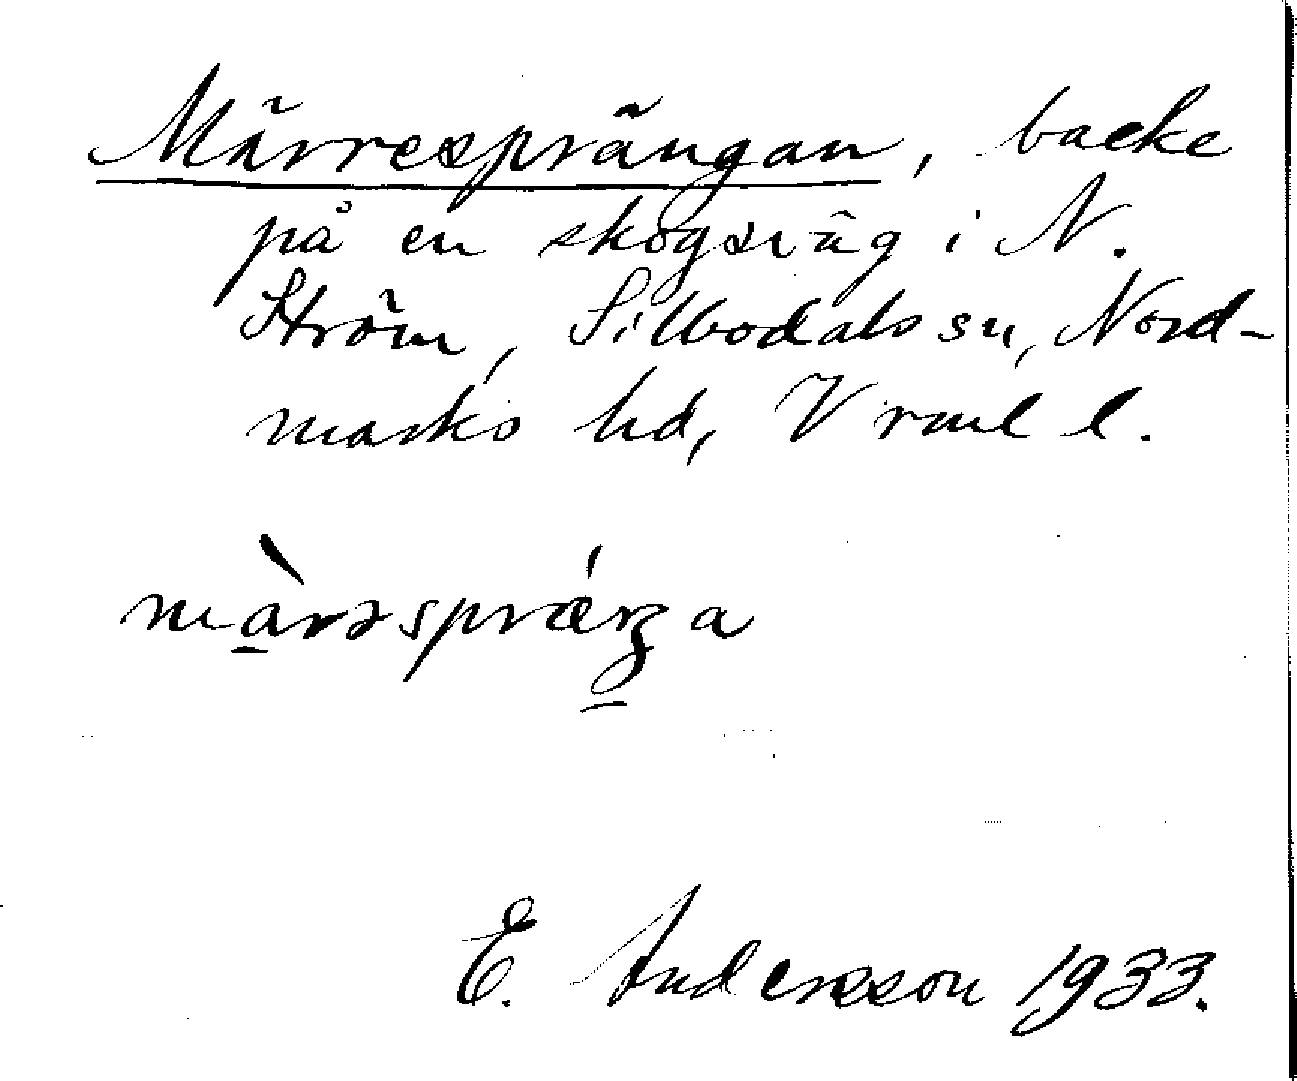 Märresprängan, backe
på en skogsväg i N.
Ström, Silbodals sn, Nord-
marks hd, Vrml l.
E. Andersson 1933.